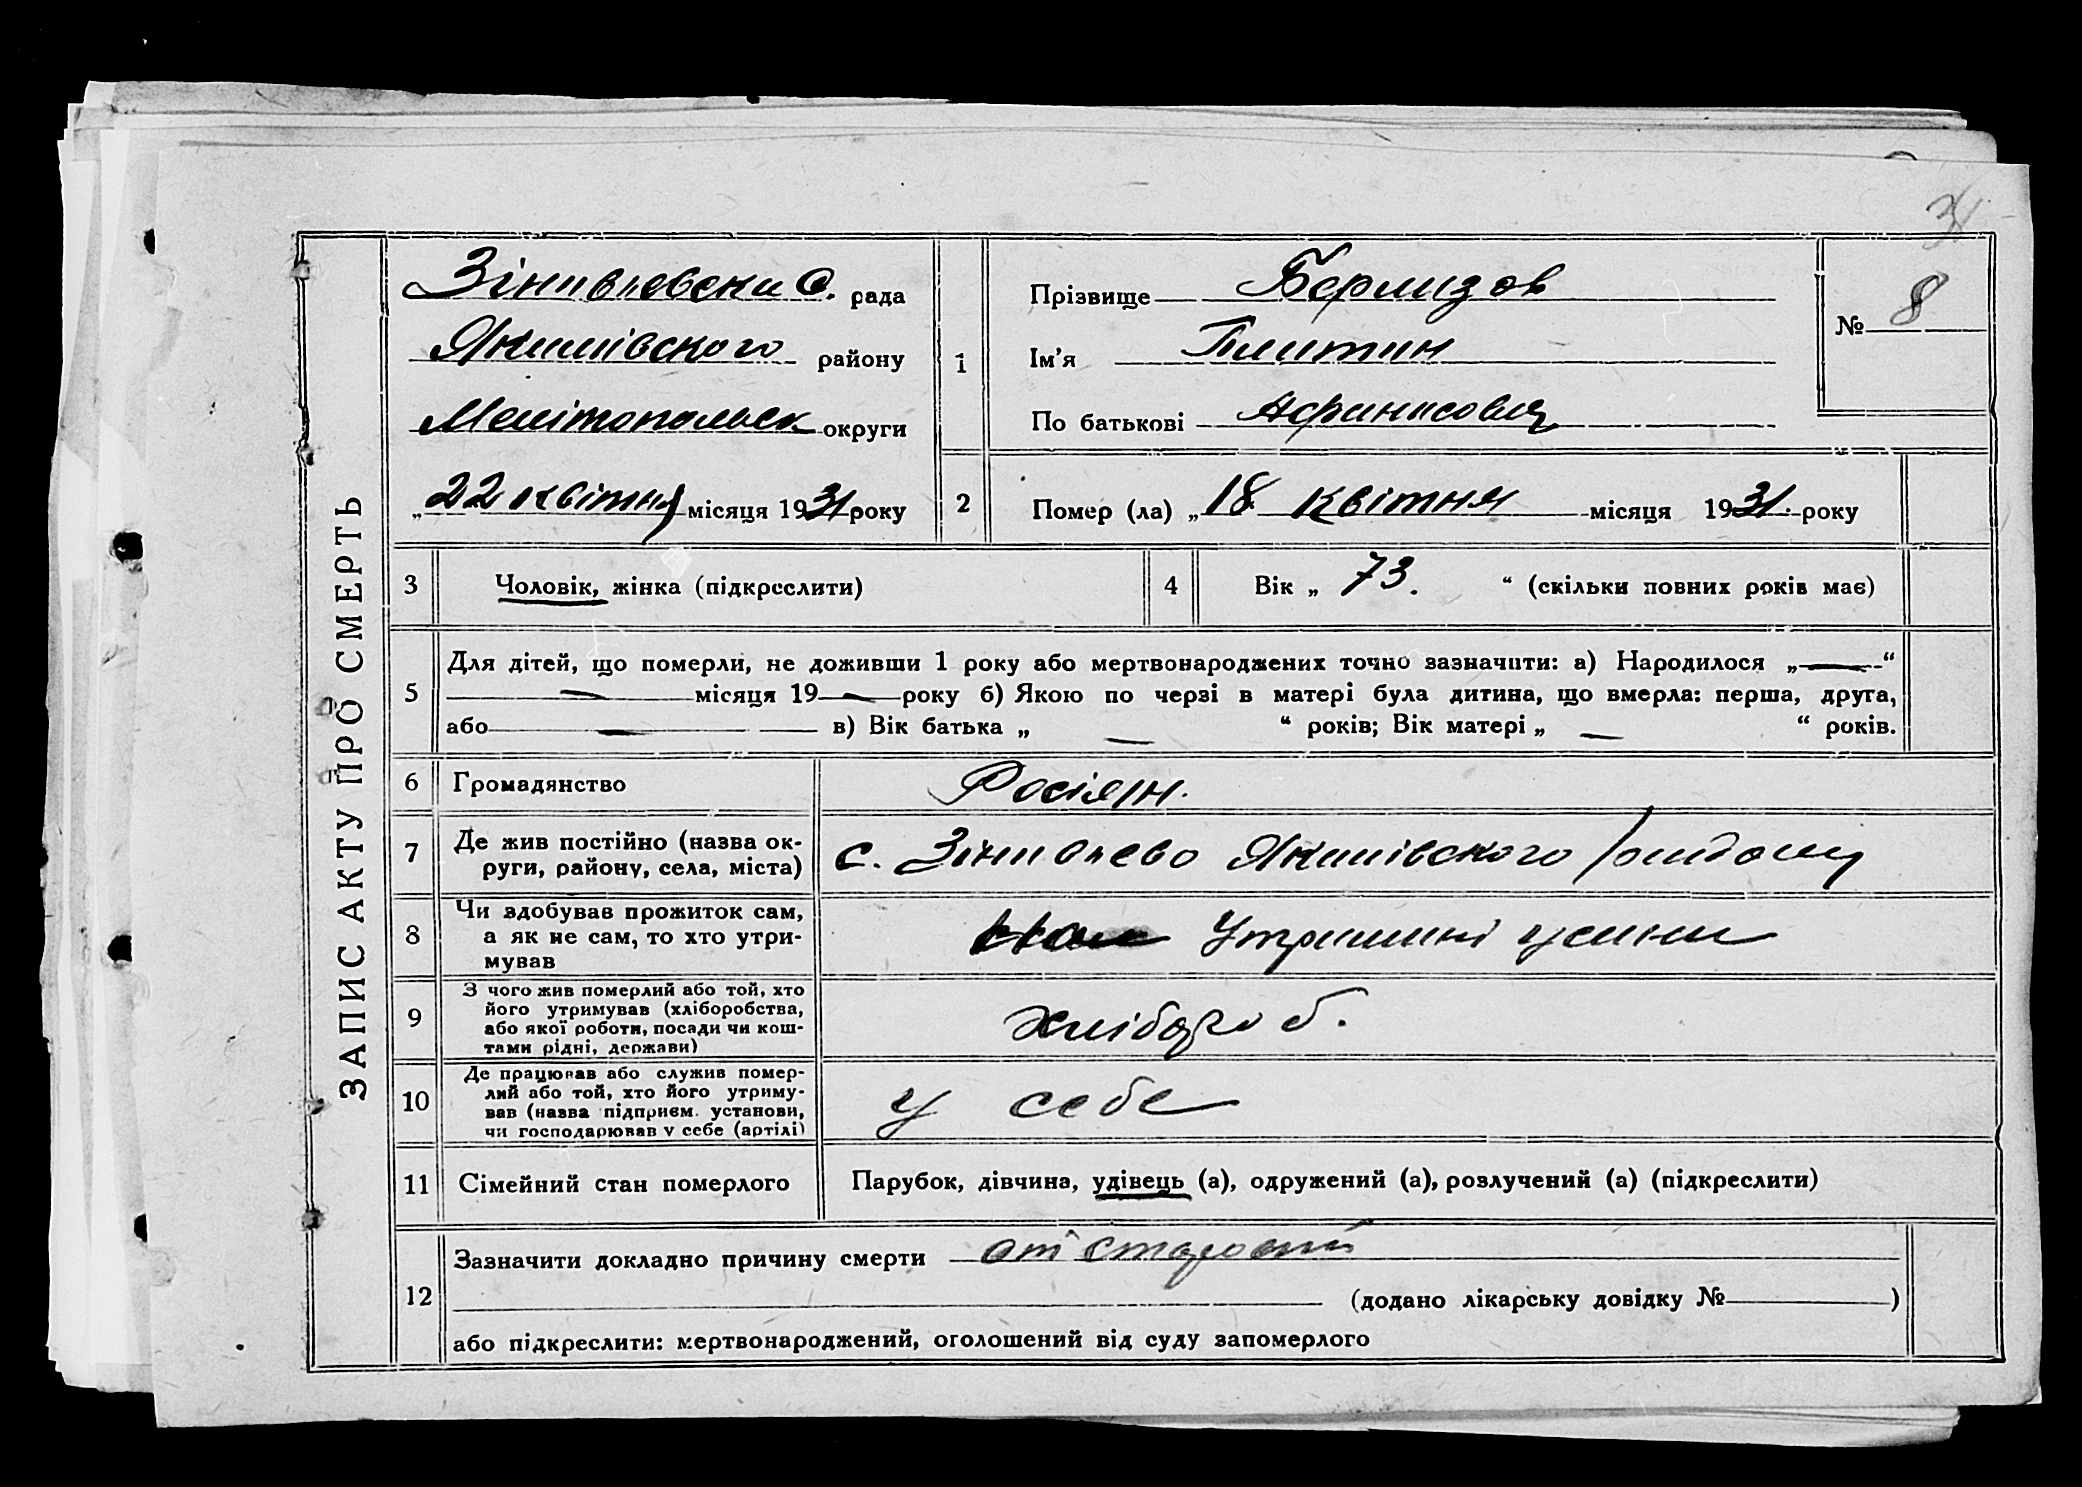 34
ЗАПИС АКТУ ПРО СМЕРТЬ
Зінивієвска С. рада
Якимівського району
Мелітопольск округи
„22 квітня місяця 1931 року
1
Прізвище Бермизов
Ім'я
По батькові Афанасович
№ 8
2
Помер (ла) „18 квітня місяця 1931. року
3
Чоловік, жінка (підкреслити)
4
Вік „ 73. “ (скільки повних років має)
5
Для дітей, що померли, не доживши 1 року або мертвонароджених точно зазначити: а) Народилося „—“
— місяця 19 — року б) Якою по черзі в матері була дитина, що вмерла: перша, друга,
або — в) Вік батька „ — “ років; Вік матері „ — “ років.
6
Громадянство
Росіян.
7
Де жив постійно (назва ок-
руги, району, села, міста)
с. Якимівського району
8
Чи здобував прожиток сам,
а як не сам, то хто утри-
мував
Утриманні у сина
9
З чого жив померлий або той, хто
його утримував (хліборобства,
або якої роботи, посади чи кош-
тами рідні, держави)
хлібороб.
10
Де працював або служив помер-
лий або той, хто його утриму-
вав (назва підприєм. установи,
чи господарював у себе (артілі)
у себе
11
Сімейний стан померлого
Парубок, дівчина, удівець (а), одружений (а), розлучений (а) (підкреслити)
12
Зазначити докладно причину смерти от старости
(додано лікарську довідку № )
або підкреслити: мертвонароджений, оголошений від суду запомерлого